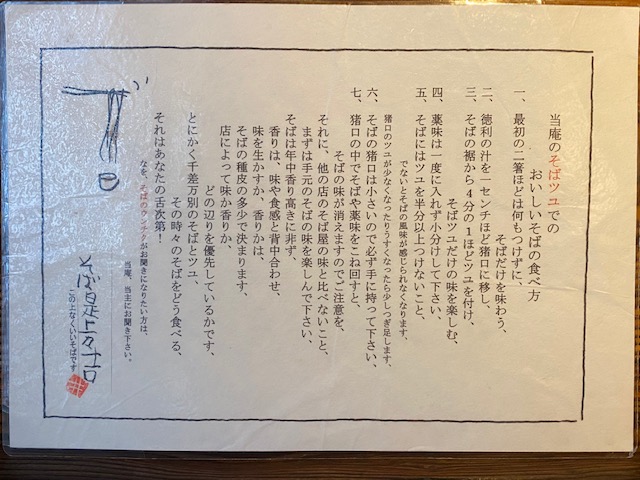 当庵のそばツユでの
おいしいそばの食べ方
一、最初の二箸ほどは何もつけずに、
そばだけを味わう、
二、徳利の汁を一センチほど猪口に移し、
三、そばの裾から４分の１ほどツユを付け、
そばツユだけの味を楽しむ、
四、薬味は一度に入れず小分けして下さい、
五、そばにはツユを半分以上つけないこと、
でないとそばの風味が感じられなくなります、
猪口のツユが少なくなったりうすくなったら少しつぎ足します、
六、そばの猪口は小さいので必ず手に持って下さい、
七、猪口の中でそばや薬味をこね回すと、
そばの味が消えますのでご注意を、
それに、他の店のそば屋の味と比べないこと、
まずは手元のそばの味を楽しんで下さい、
そばは年中香り高きに非ず、
香りは、味や食感と背中合わせ、
味を生かすか、香りかは、
そばの種皮の多少で決まります、
店によって味か香りか、
どの辺りを優先しているかです、
とにかく千差万別のそばとツユ、
その時々のそばをどう食べる、
それはあなたの舌次第！
なを、そばのウンチクがお聞きになりたい方は、
当庵、当主にお聞き下さい。
そば是上々吉
この上なくいいそばです